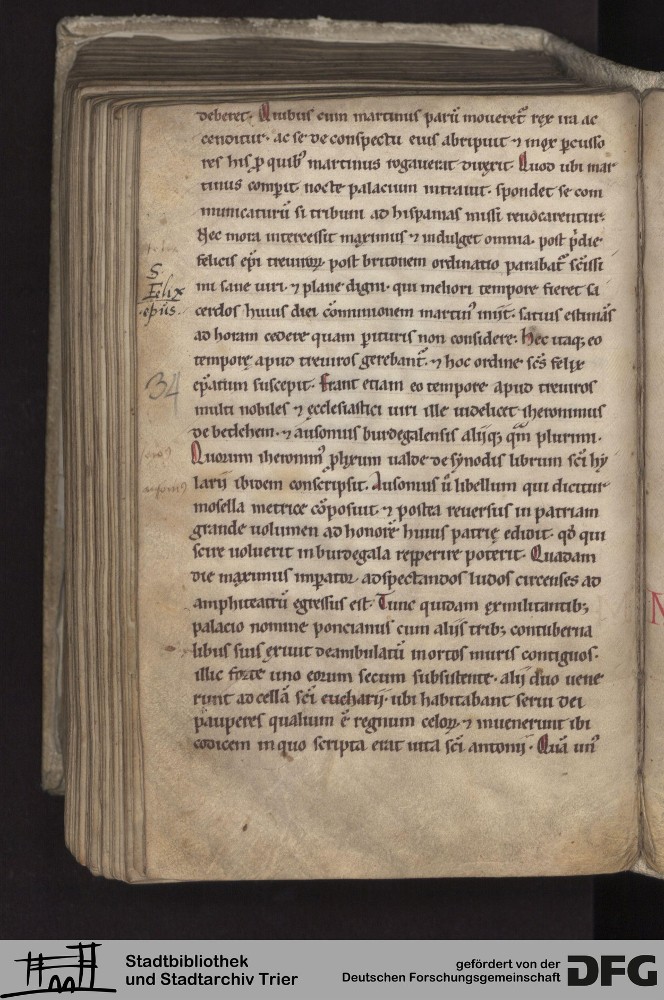 deberet. Quibus cum martinus parū moueret᷑ rex ira ac
cenditur. ac se de conspectu eius abripuit ⁊ mox ꝑcusso
res his ꝓ quibꝰ martinus rogauerat duxit. Quod ubi mar
tinus comperit nocte palacium intrauit. spondet se com
municaturū si tribuni ad hispanias missi reuocarentur.
Nec mora intercessit maximus ⁊ indulget omnia. post p̄die
felicis ep̄i treuiroꝝ post britonem ordinatio parabat᷑ sc̄issi
mi sane uiri. ⁊ plane digni. qui meliori tempore fieret sa
cerdos huius diei cōmunionem martinꝰ iniit. satius estimās
ad horam cedere quam perituris non considere. Hec itaq; eo
tempore apud treuiros gerebant᷑. ⁊ hoc ordine sc̄s felix
ep̄atum suscepit. Erant etiam eo tempore apud treuiros
multi nobiles ⁊ ecclesiastici uiri ille uidelicet iheronimus
de betlehem. ⁊ ausonius burdegalensis alijq; plurimi.
Quorum iheronimꝰ plixum ualde de synodis librum sc̄i hy
larii ibidem conscripsit. Ausonius ū libellum qui dicitur
mosella metrice cōposuit ⁊ postea reuersus in patriam
grande uolumen ad honorē huius patrie edidit. qd̄ qui
scire uoluerit in burdegala repperire poterit. Quadam
die maximus imperator ad spectandos ludos circenses ad
amphiteatrū egressus est. Tunc quidam ex militantibꝫ
palacio nomine poncianus cum alijs tribꝫ contuberna
libus suis exiuit deambulatū in ortos muris contiguos.
illic forte uno eorum secum subsistente. alij duo uene
runt ad cellā sc̄i eucharij. ubi habitabant serui dei
pauperes qualium ē regnum celoꝝ. ⁊ inuenerunt ibi
codicem in quo scripta erat uita sc̄i antonij. Quā unꝰ
S.
Felix
ep̄us.
34
Stadtbibliothek
und Stadtarchiv Trier
gefördert von der
Deutschen Forschungsgemeinschaft
DFG